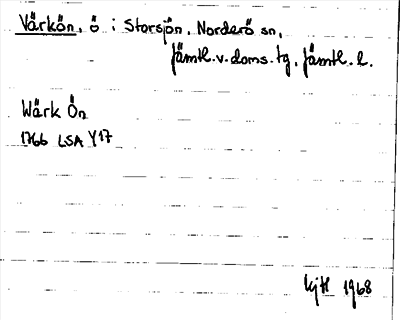 Värkön, ö i Storsjön, Norderö sn,
Jämtl. v. doms. tg, Jämtl. l.
Wärk Ön
1766 LSA Y17
1968